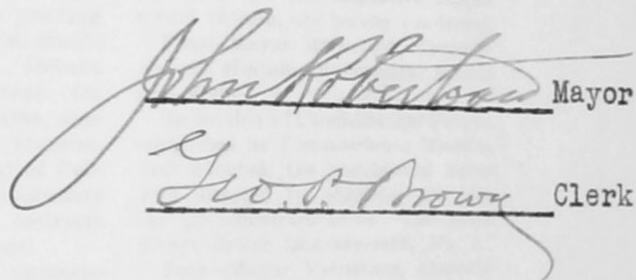 John Robertson Mayor
Geo. P. Brown Clerk